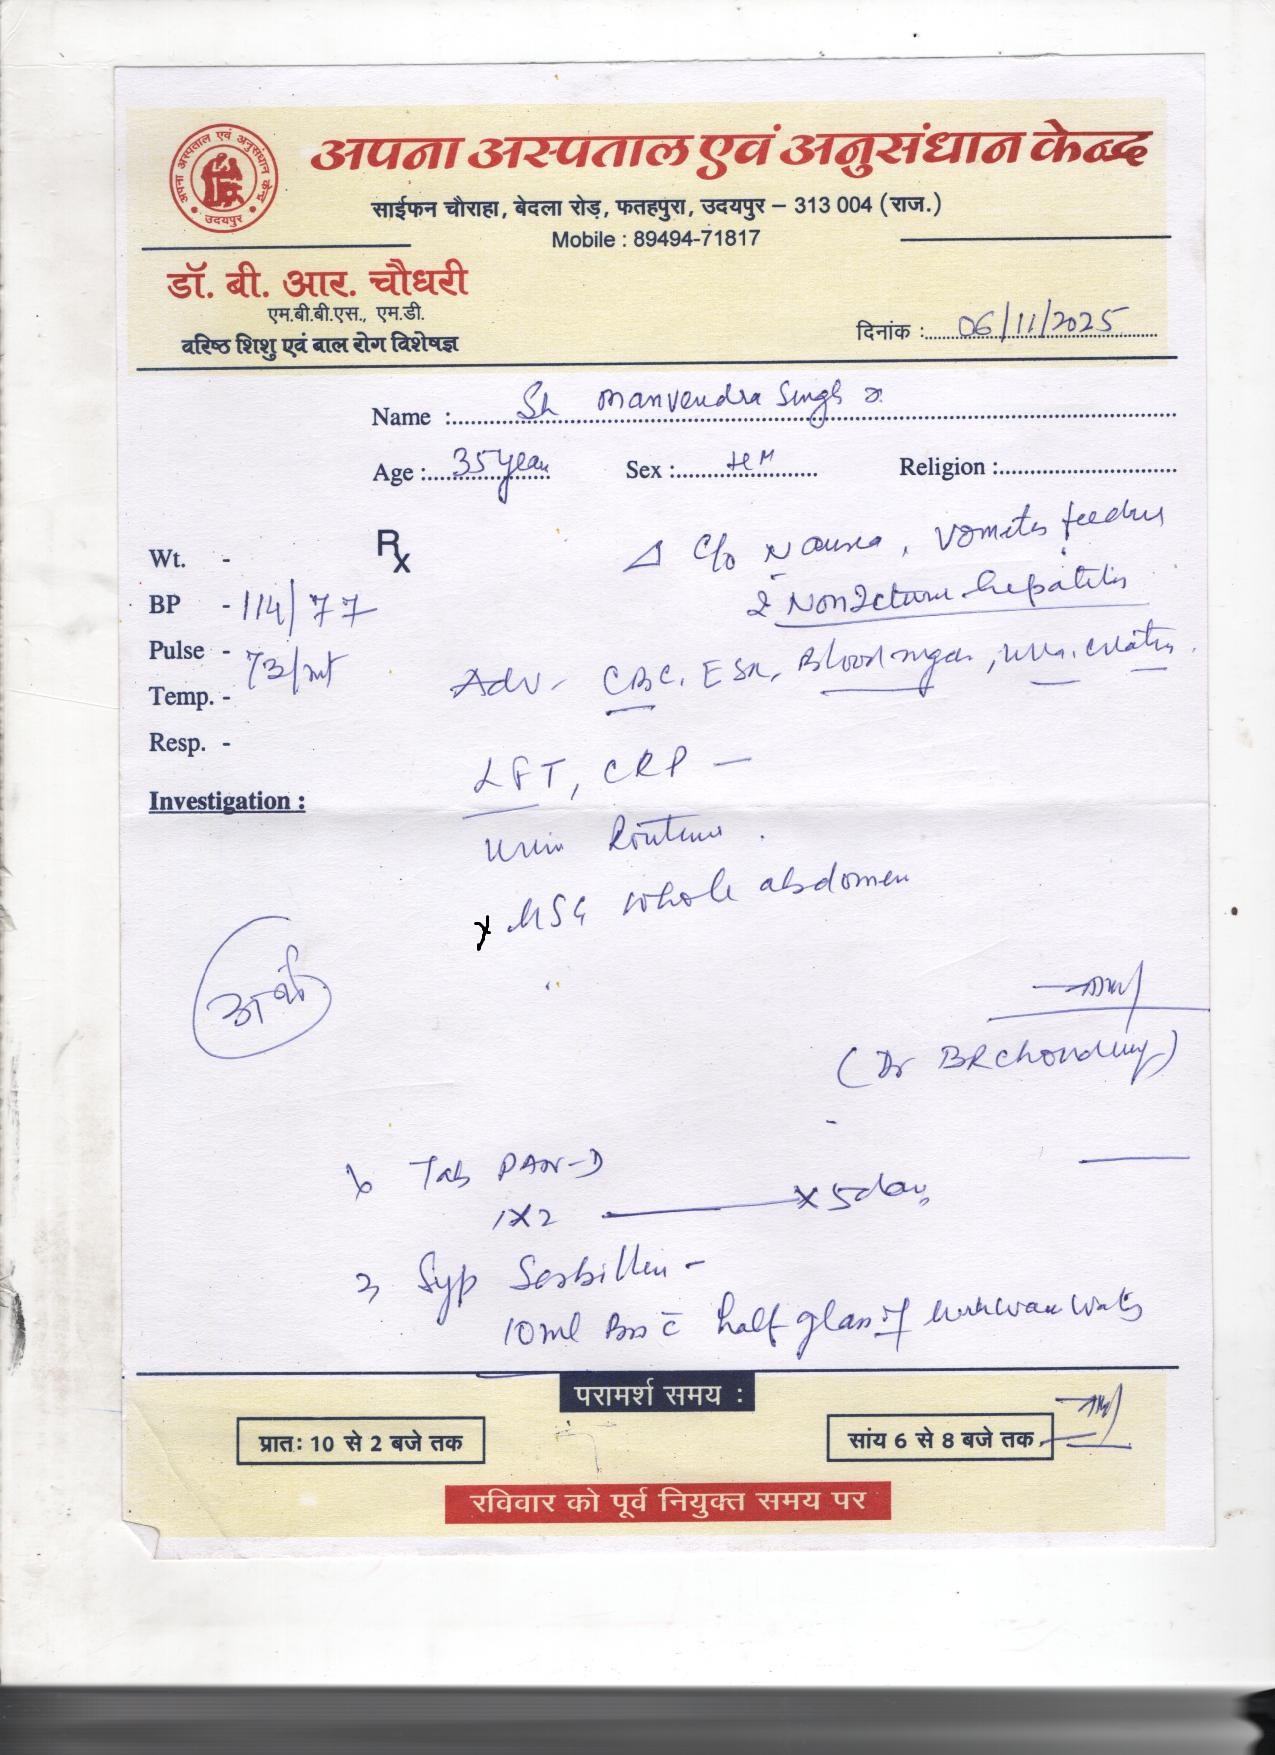 अपना अस्पताल एवं अनुसंधान केन्द्र
अपना अस्पताल एवं अनुसंधान केन्द्र
उदयपुर
साईफन चौराहा, बेदला रोड़, फतहपुरा, उदयपुर – 313 004 (राज.)
Mobile : 89494-71817
डॉ. बी. आर. चौधरी
एम.बी.बी.एस., एम.डी.
वरिष्ठ शिशु एवं बाल रोग विशेषज्ञ
दिनांक : 06/11/2025
Name : Sh Manvendra Singh
Age : 35 year Sex : M Religion :
Rx
C/o Nausea,
Wt. -
BP - 114/77
hepatitis
Pulse - 73/mt
Adv - CBC, ESR, Blood sugar,
Temp. -
Resp. -
LFT, CRP –
Investigation :
Urin Routine.
x USG whole abdomen
(Dr BR Choudhary)
Tab PAN-D
1x2 — x 5 days
Syp Sorbiline -
10 ml half glass of water
परामर्श समय :
प्रातः 10 से 2 बजे तक
सांय 6 से 8 बजे तक
रविवार को पूर्व नियुक्त समय पर